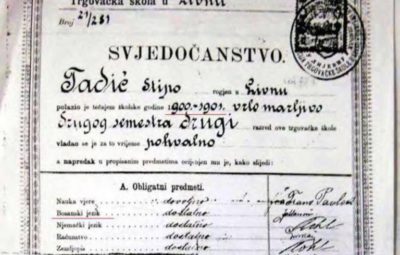 Trgovačka škola u Livnu
Broj 21/281
SVJEDOČANSTVO.
Tadić Stipo rogjen u Livnu
polazio je tečajem školske godine 1900.-1901. vrlo marljivo
drugog semestra drugi razred ove trgovačke škole
vladao se je za to vrijeme pohvalno
a napredak u propisanim predmetima ocijenjen mu je, kako slijedi:
A. Obligatni predmeti.
Nauka vjere dovoljno
Bosanski jezik dostatno
Njemački jezik dostatno
Računstvo dostatno
Zemljopis dostatno